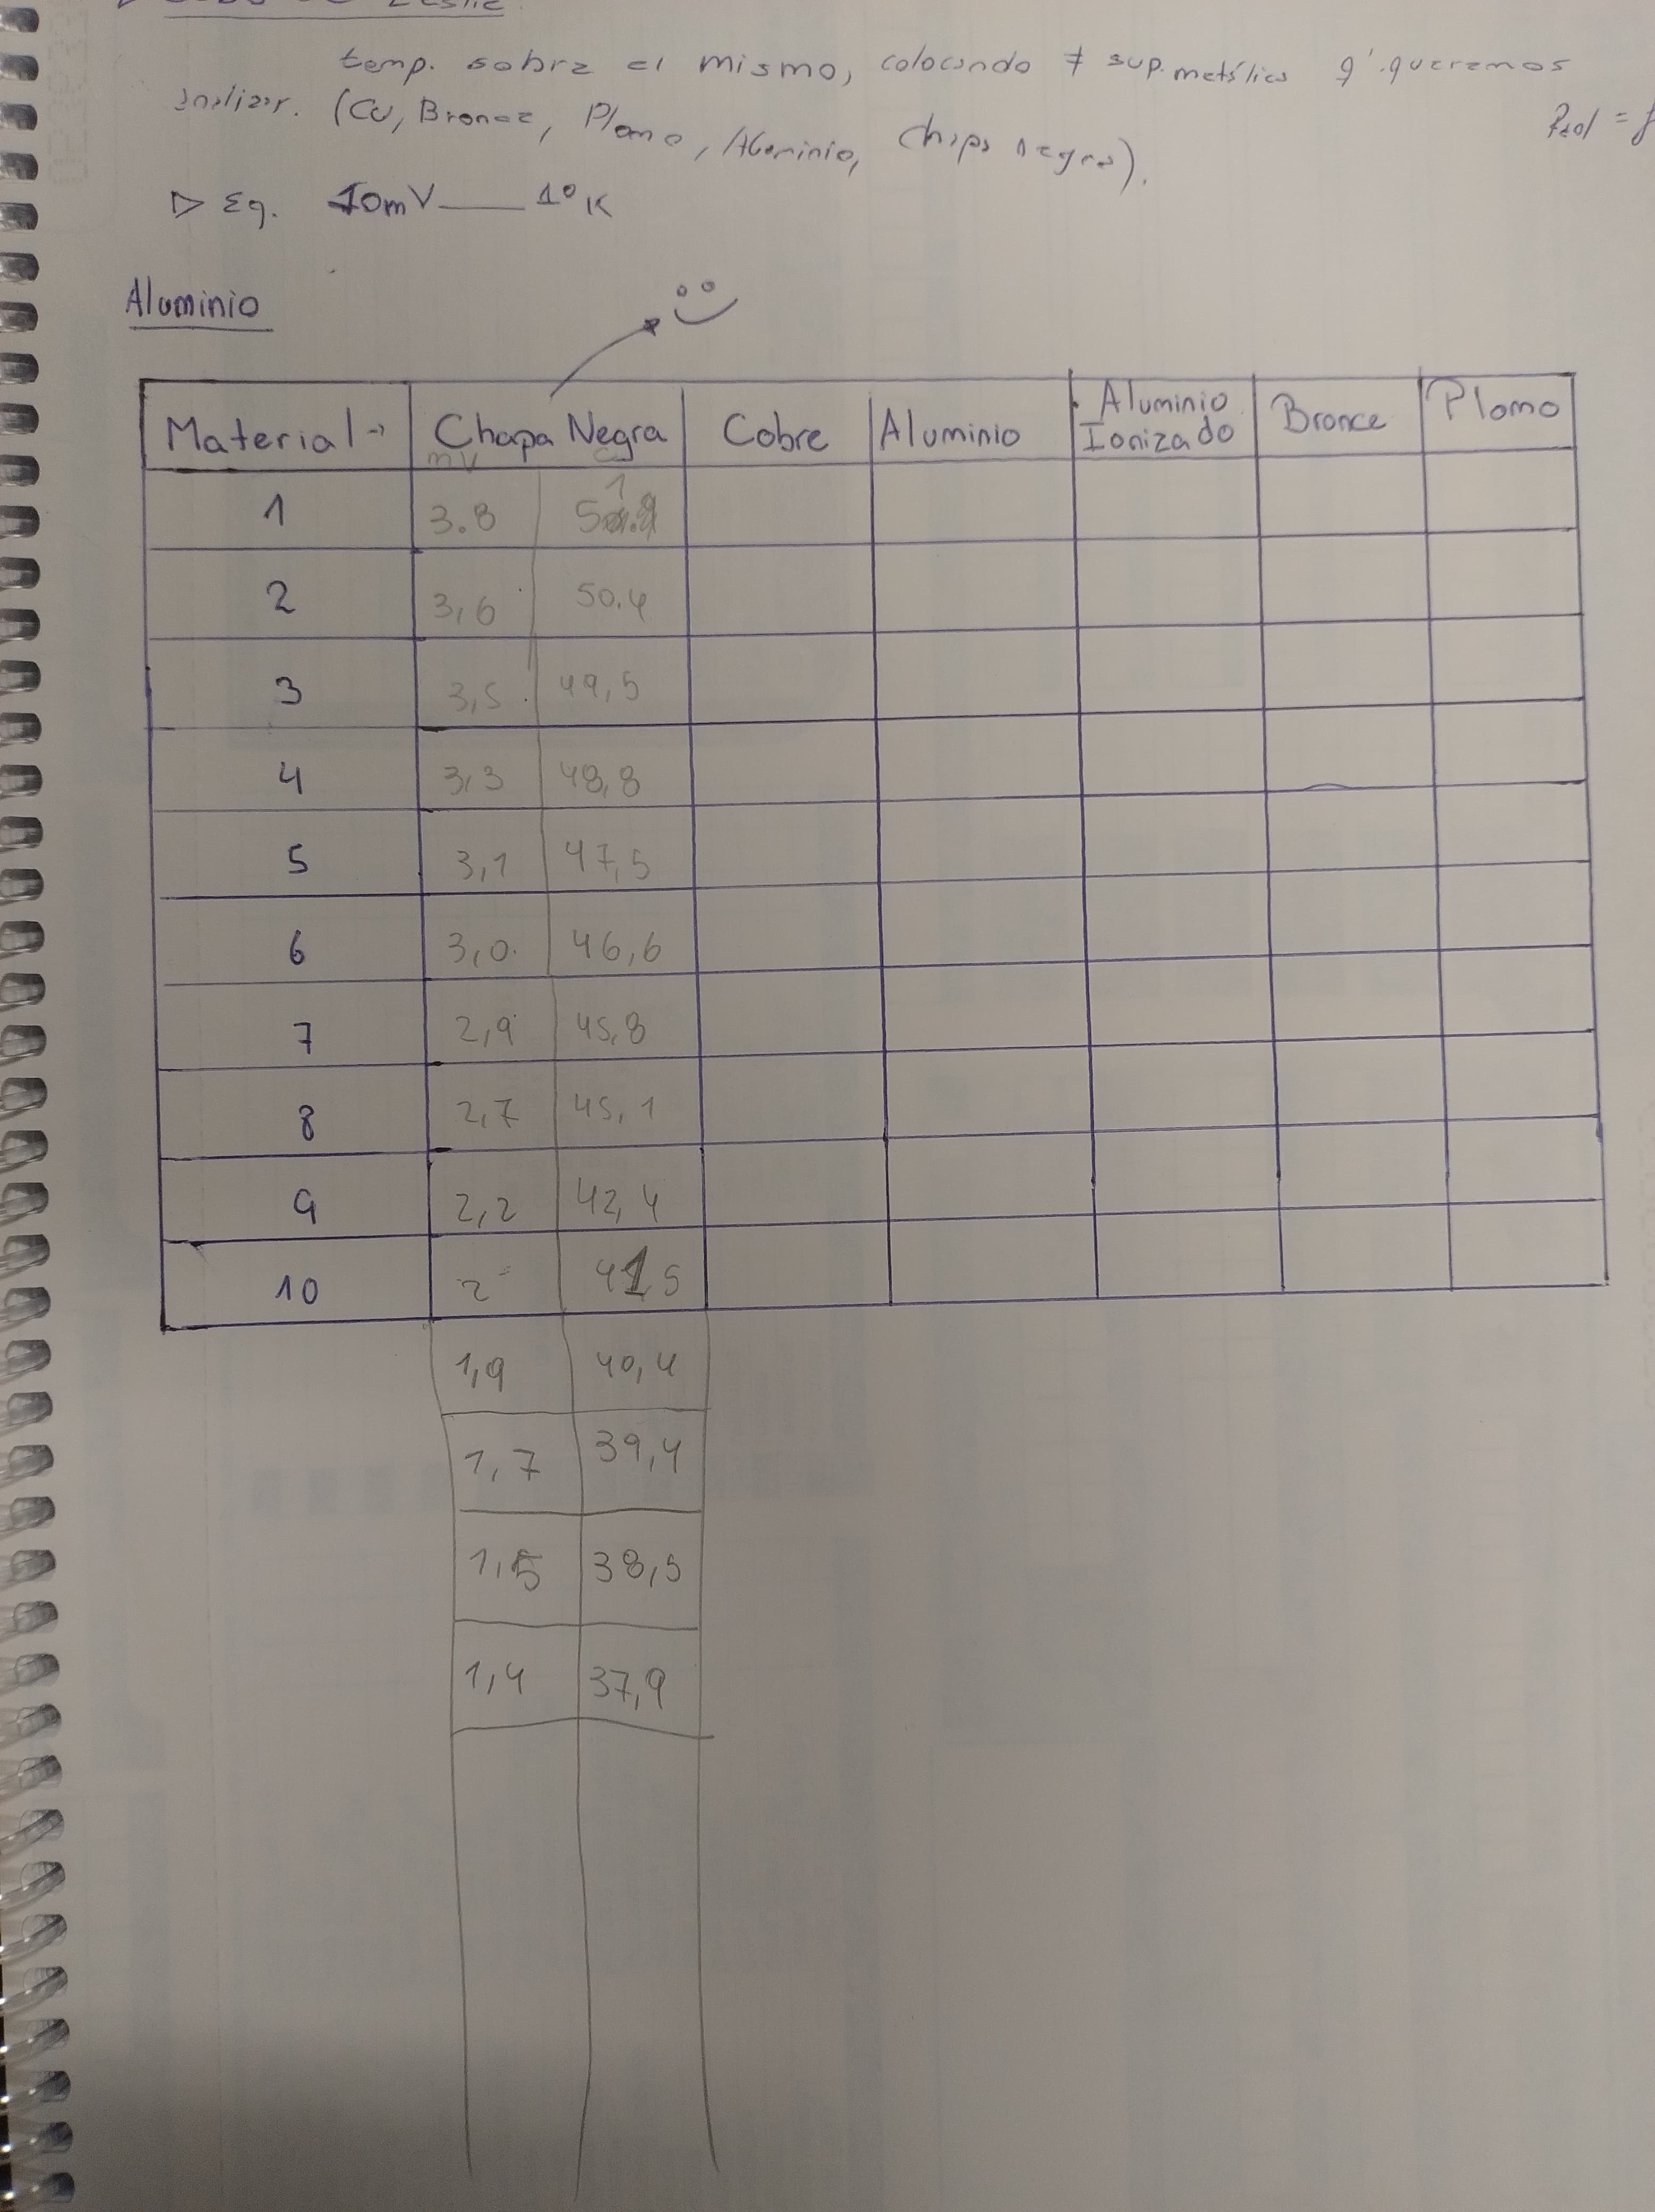 temp. sobre el mismo, colocando ≠ sup. metálica q' queremos
analizar. (Cu, Bronce, Plomo, Aluminio, Chapa negra).
▷ Eq. 10mV — 1°K
Aluminio
Material → Chapa Negra Cobre Aluminio Aluminio Ionizado Bronce Plomo
mV
1 3.8 51
2 3,6 50.4
3 3,5 49,5
4 3,3 48,8
5 3,1 47,5
6 3,0 46,6
7 2,9 45,8
8 2,7 45,1
9 2,2 42,4
10 2 41,5
1,9 40,4
1,7 39,4
1,5 38,5
1,4 37,9